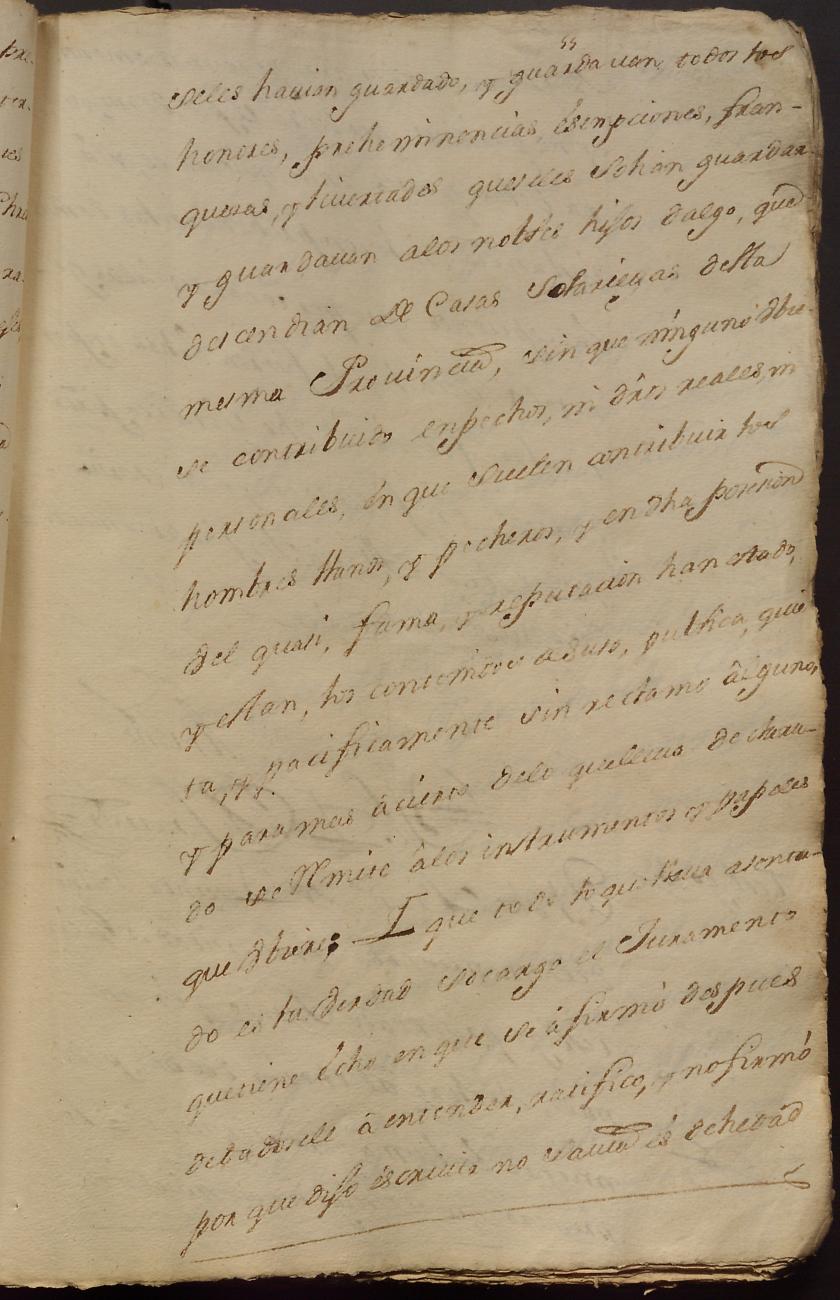 seles havian guardado, y guardavan, todos los
honores, preheminencias, ésempciones, fran-
quezas, y livertades que seles Solian guardar
y guardavan alos nobles hijos dalgo, que
descendian de Casas Solariegas desta
mesma Provincia, sin que ninguno
se contribuido enpechos, ni dros reales, ni
personales, én que Suelen contribuir los
hombres llanos, y pecheros, y en dha posesion
del quasi, fama, y reputacion han estado,
y estan, los contenidos publica, quie
ta, y pacificamente sin reclamo álguno,
y para mas ácierto delo quelleva declara-
do se Rmite álos instrumentos y papeles
que — I que todo lo que lleva asenta-
do es la Verdad Socargo el Juramento
quetiene écho en que se áfirmó despues
de ádosele á entender, ratifico, y no firmó
por que dijo éscrivir no Savia és de hedad